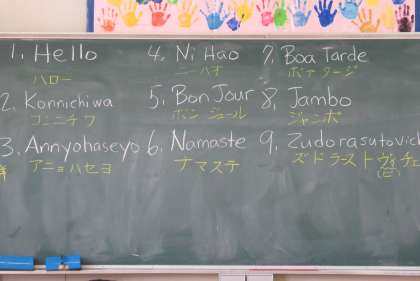 1. Hello
ハロー
2. Konnichiwa
コンニチワ
3. Annyohaseyo
アニョハセヨ
4. Ni Hao
ニーハオ
5. Bon Jour
ボンジュール
6. Namaste
ナマステ
7. Boa Tarde
ボアタージ
8. Jambo
ジャンボ
9. Zudorasutovich
ズドラースト